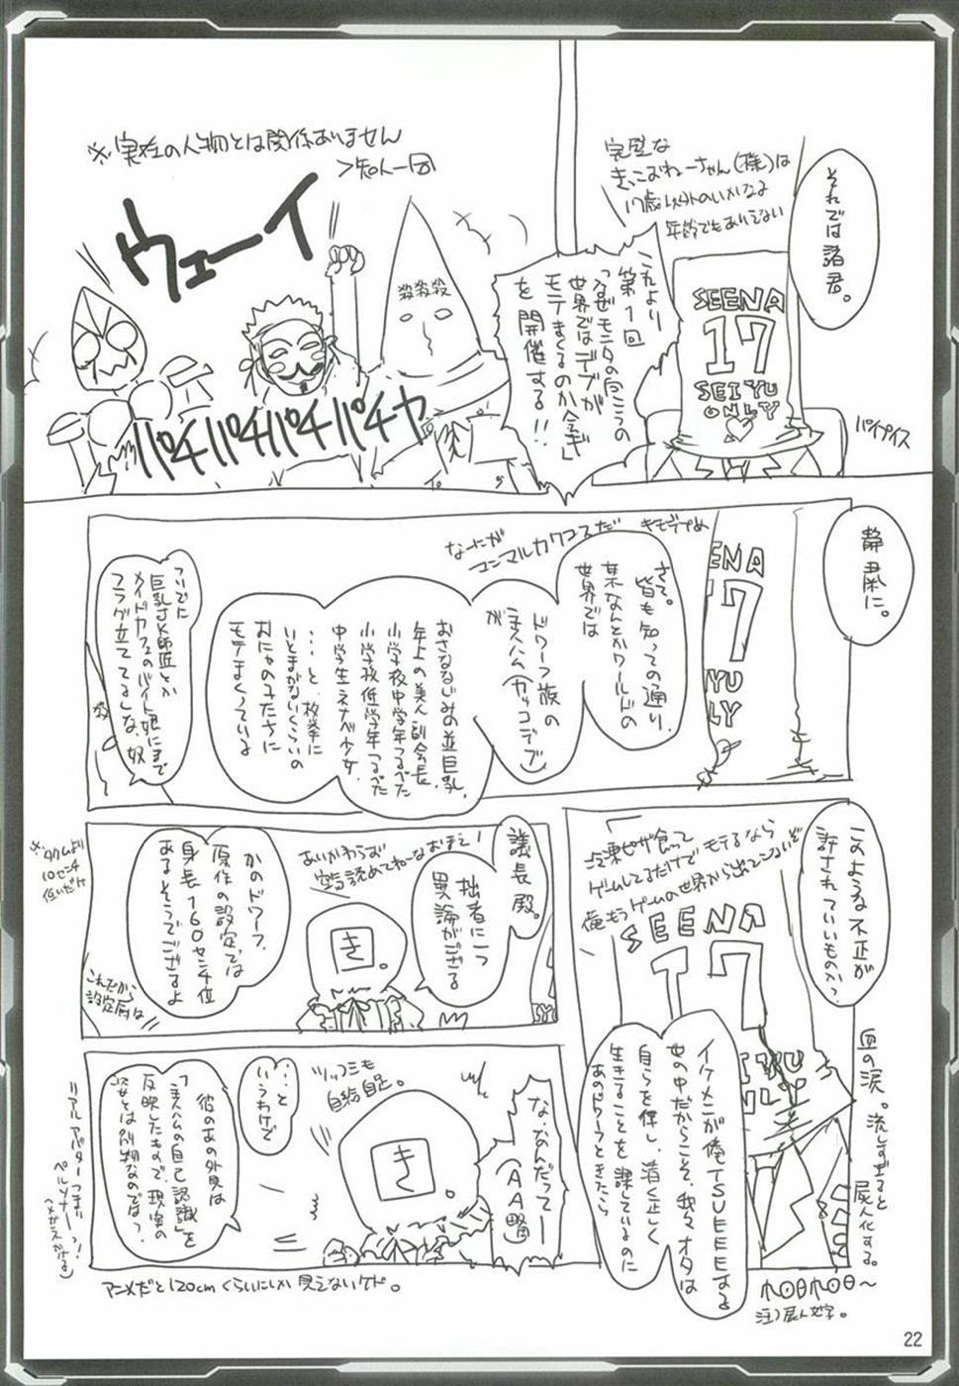 それでは諸君。
完璧な
きっこおねーちゃん(様)は
17歳以外のいかなる
年齢でもありえない
SEENA
17
SEIYU
ONLY
パイプイス
これより
第1回
「なぜモニタの向こうの
世界ではデブが
モテまくるのか会議」
を開催する!!
※実在の人物とは関係ありません
>知人一同
ウェーイ
殺殺殺
パチパチパチパチャ
静粛に。
SEENA
17
さて。
皆も知っての通り、
某なんとかワールドの
世界では
ドワーフ族の
主人ハム(カッコデブ)
が
おさななじみの並巨乳、
年上の美人副会長、
小学校中学年つるぺた
小学校低学年つるぺた
中学生ネナベ少女、
…と、枚挙に
いとまがないくらいの
おにゃの子たちに
モテまくっている
ついでに
巨乳JK師匠とか
メイドカフェのバイト娘にまで
フラグ立ててるしな、奴
このような不正が
許されていいものか?
冷凍ピザ食って
ゲームしてるだけでモテるなら
俺もうゲームの世界から出てこないぞ
SEENA
17
イケメンが俺TSUEEEEする
世の中だからこそ、我々オタは
自らを律し、清く正しく
生きることを課しているのに
あのドワーフときたら
血の涙。流しすぎると
屍人化する。
注)屍人文字。
議長殿。
拙者に一つ
異論がござる
あいかわらず
空気読めてねーなおまえ!
き。
かのドワーフ、
原作の設定では
身長160センチ位
あるそうでござるよ
※タクムより
10センチ
低いだけ
これだから
設定厨は
な、なんだってー
(AA略)
ツッコミも
自給自足。
き。
…と
いうわけで
彼のあの外見は
「主人ハムの自己認識」を
反映したもので、現実の
姿とは別物なのでは?
リアルアバターつまり
ペルソナーっ!
(メガネかける)
アニメだと120cmくらいにしか見えないケド。
22